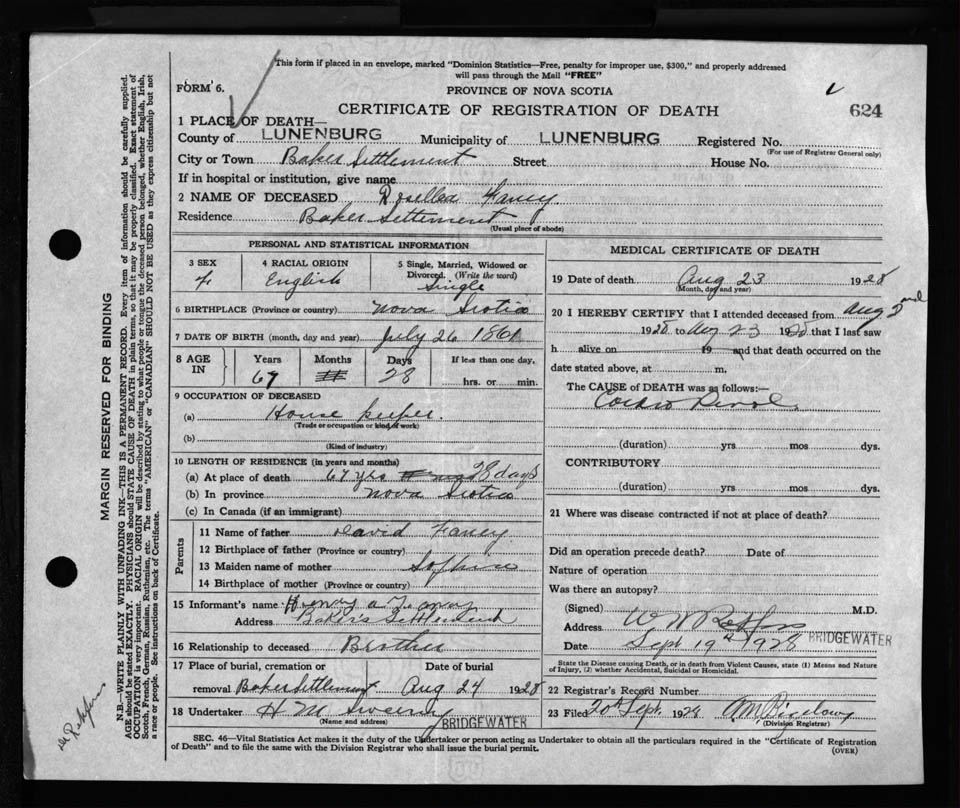 This form if placed in an envelope, marked "Dominion Statistics—Free, penalty for improper use, $300," and properly addressed
will pass through the Mail "FREE"
FORM 6.
PROVINCE OF NOVA SCOTIA
CERTIFICATE OF REGISTRATION OF DEATH
624
1 PLACE OF DEATH—
County of LUNENBURG Municipality of LUNENBURG Registered No.
(For use of Registrar General only)
City or Town Baker Settlement Street House No.
If in hospital or institution, give name
2 NAME OF DECEASED Rosellea Fancy
Residence Baker Settlement
(Usual place of abode)
PERSONAL AND STATISTICAL INFORMATION
3 SEX 4 RACIAL ORIGIN 5 Single, Married, Widowed or Divorced. (Write the word)
f English Single
6 BIRTHPLACE (Province or country) Nova Scotia
7 DATE OF BIRTH (month, day and year) July 26 1861
8 AGE IN Years Months Days If less than one day,
67 28 hrs. or min.
9 OCCUPATION OF DECEASED
(a) House keeper.
(Trade or occupation or kind of work)
(b)
(Kind of industry)
10 LENGTH OF RESIDENCE (in years and months)
(a) At place of death 67 yrs 28 days
(b) In province Nova Scotia
(c) In Canada (if an immigrant)
Parents
11 Name of father David Fancy
12 Birthplace of father (Province or country)
13 Maiden name of mother Sophia
14 Birthplace of mother (Province or country)
15 Informant's name Henry a Fancy
Address Baker's Settlement
16 Relationship to deceased Brother
17 Place of burial, cremation or Date of burial
removal Baker Settlement Aug 24 1928
18 Undertaker H M Sweeny BRIDGEWATER
(Name and address)
MEDICAL CERTIFICATE OF DEATH
19 Date of death Aug 23 1928
(Month, day and year)
20 I HEREBY CERTIFY that I attended deceased from Aug 2nd
1928 to Aug 23 1928 that I last saw
h alive on 19 and that death occurred on the
date stated above, at m.
The CAUSE of DEATH was as follows:—
Cardio Renal
(duration) yrs mos dys.
CONTRIBUTORY
(duration) yrs mos dys.
21 Where was disease contracted if not at place of death?
Did an operation precede death? Date of
Nature of operation
Was there an autopsy?
(Signed) M.D.
Address W W BRIDGEWATER
Date Sept 19th 1928
State the Disease causing Death, or in death from Violent Causes, state (1) Means and Nature
of Injury, (2) whether Accidental, Suicidal or Homicidal.
22 Registrar's Record Number
23 Filed 20th Sept. 1928
(Division Registrar)
SEC. 46—Vital Statistics Act makes it the duty of the Undertaker or person acting as Undertaker to obtain all the particulars required in the "Certificate of Registration
of Death" and to file the same with the Division Registrar who shall issue the burial permit.
(OVER)
MARGIN RESERVED FOR BINDING
N.B.—WRITE PLAINLY WITH UNFADING INK—THIS IS A PERMANENT RECORD. Every item of information should be carefully supplied.
AGE should be stated EXACTLY. PHYSICIANS should STATE CAUSE OF DEATH in plain terms, so that it may be properly classified. Exact statement of
OCCUPATION is very important. RACIAL ORIGIN will be described by stating to what people or tongue the deceased person belonged, whether English, Irish,
Scotch, French, German, Russian, Ruthenian, etc. The terms "AMERICAN" or "CANADIAN" SHOULD NOT BE USED as they express citizenship but not
a race or people. See instructions on back of Certificate.